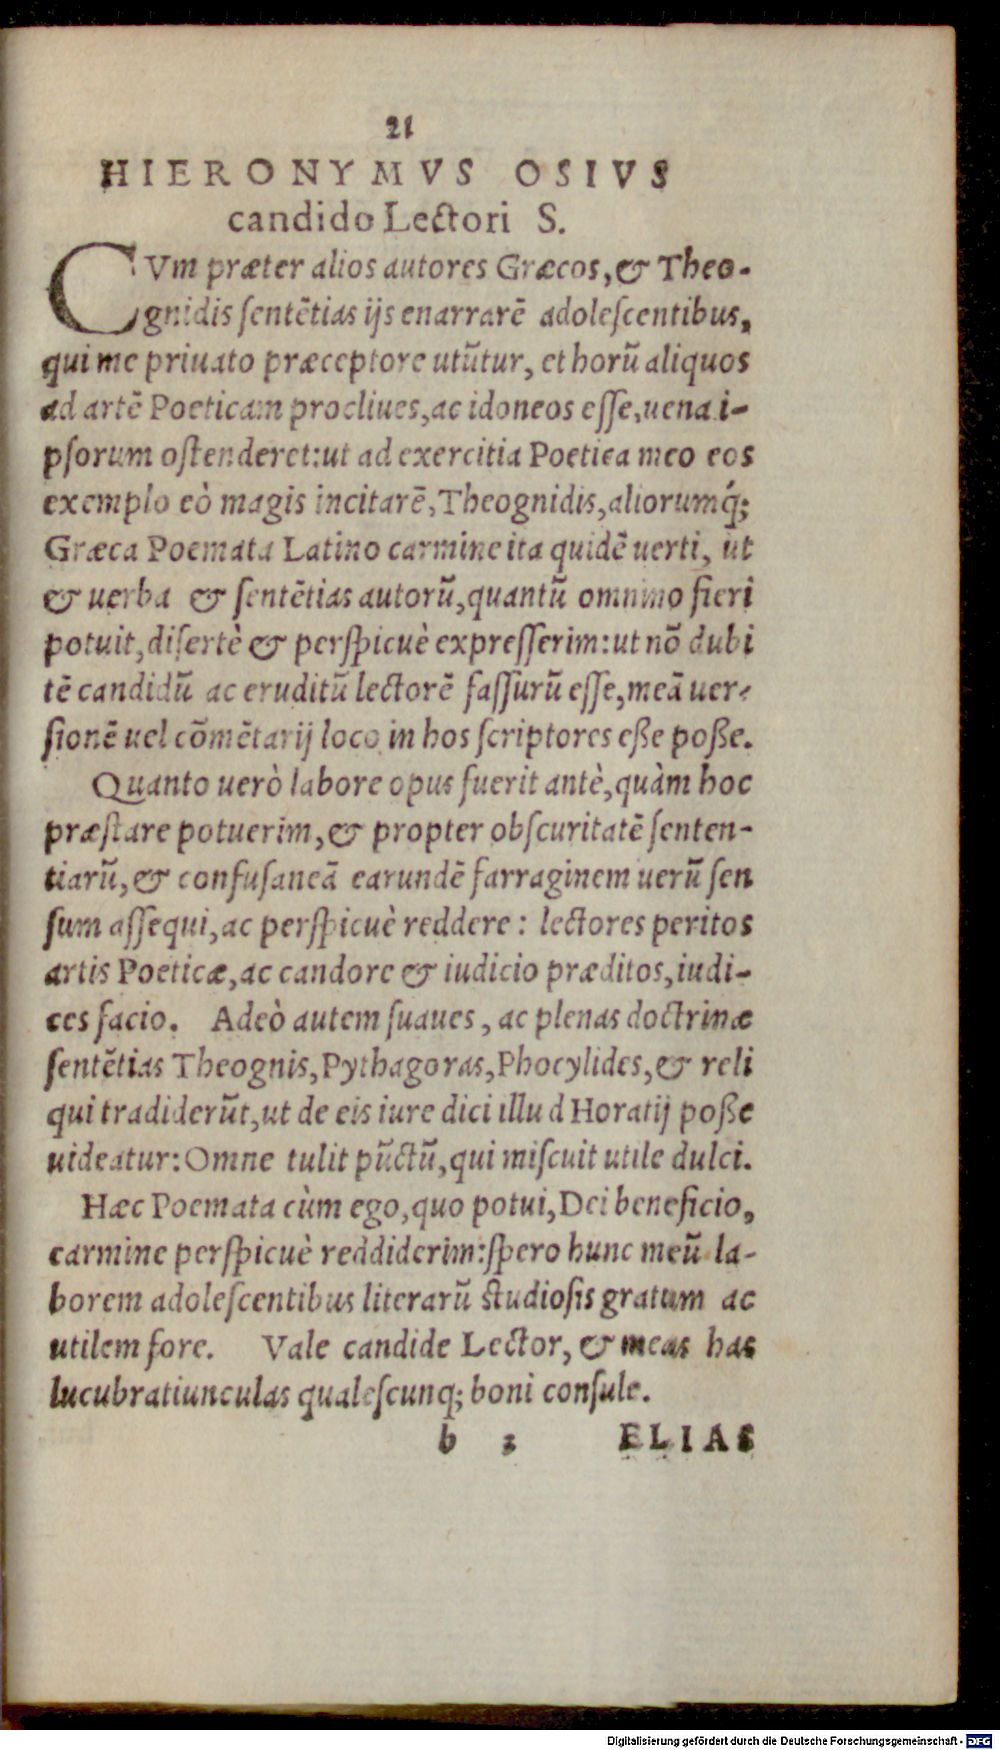 21
HIERONYMVS OSIVS
candido Lectori S.
CVm præter alios autores Græcos, & Theo-
gnidis ſentētias ijs enarrarē adoleſcentibus,
qui me priuato præceptore utūtur, et horū aliquos
ad artē Poeticam procliues, ac idoneos eſſe, uena i-
pſorum oſtenderet: ut ad exercitia Poetica meo eos
exemplo eò magis incitarē, Theognidis, aliorumq́;
Græca Poemata Latino carmine ita quidē uerti, ut
& uerba & ſentētias autorū, quantū omnino fieri
potuit, diſertè & perſpicuè expreſſerim: ut nō dubi
tē candidū ac eruditū lectorē faſſurū eſſe, meā uer-
ſionē uel cōmētarij loco in hos ſcriptores eße poße.
Quanto uerò labore opus fuerit antè, quàm hoc
præſtare potuerim, & propter obſcuritatē ſenten-
tiarū, & confuſaneā earundē farraginem uerū ſen
ſum aſſequi, ac perſpicuè reddere: lectores peritos
artis Poeticæ, ac candore & iudicio præditos, iudi-
ces facio. Adeò autem ſuaues, ac plenas doctrinæ
ſentētias Theognis, Pythagoras, Phocylides, & reli
qui tradiderūt, ut de eis iure dici illud Horatij poße
uideatur: Omne tulit pūctū, qui miſcuit utile dulci.
Hæc Poemata cùm ego, quo potui, Dei beneficio,
carmine perſpicuè reddiderim: ſpero hunc meū la-
borem adoleſcentibus literarū ſtudioſis gratum ac
utilem fore. Vale candide Lector, & meas has
lucubratiunculas qualeſcunq; boni conſule.
b 3 ELIAS
Digitalisierung gefördert durch die Deutsche Forschungsgemeinschaft - DFG